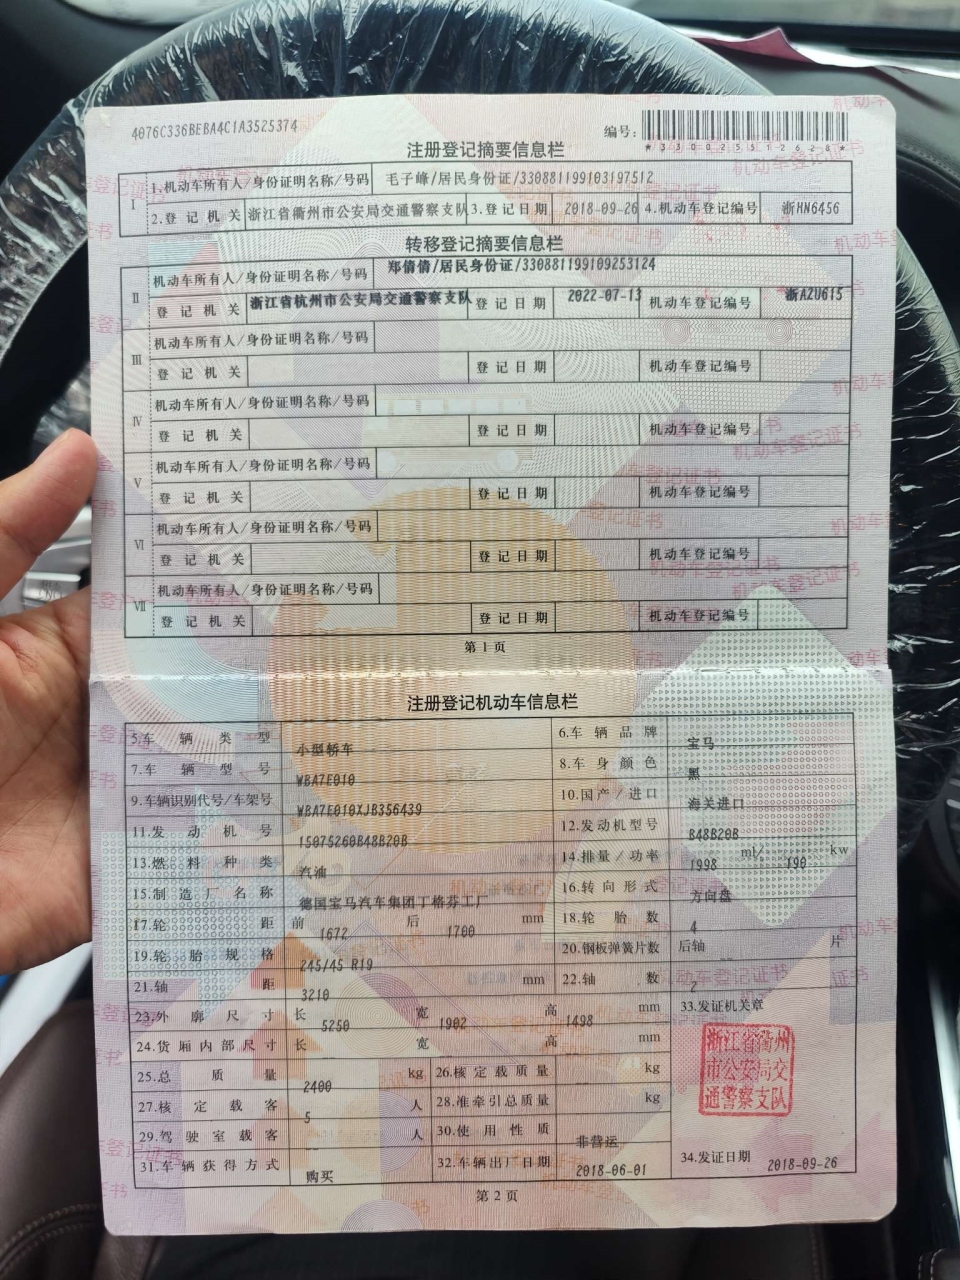 4076C336BEBA4C1A3525374
编号:
*330025512628*
注册登记摘要信息栏
I 1.机动车所有人/身份证明名称/号码 毛子峰/居民身份证/330881199103197512
2.登记机关 浙江省衢州市公安局交通警察支队 3.登记日期 2018-09-26 4.机动车登记编号 浙HN6456
转移登记摘要信息栏
II 机动车所有人/身份证明名称/号码 郑倩倩/居民身份证/330881199109253124
登记机关 浙江省杭州市公安局交通警察支队 登记日期 2022-07-13 机动车登记编号 浙A2U615
III 机动车所有人/身份证明名称/号码
登记机关 登记日期 机动车登记编号
IV 机动车所有人/身份证明名称/号码
登记机关 登记日期 机动车登记编号
V 机动车所有人/身份证明名称/号码
登记机关 登记日期 机动车登记编号
VI 机动车所有人/身份证明名称/号码
登记机关 登记日期 机动车登记编号
VII 机动车所有人/身份证明名称/号码
登记机关 登记日期 机动车登记编号
第1页
注册登记机动车信息栏
5.车辆类型 小型轿车 6.车辆品牌 宝马
7.车辆型号 WBA7E010 8.车身颜色 黑
9.车辆识别代号/车架号 WBA7E010XJB356439 10.国产/进口 海关进口
11.发动机号 15075260B48B20B 12.发动机型号 B48B20B
13.燃料种类 汽油 14.排量/功率 1998 ml/ 190 kw
15.制造厂名称 德国宝马汽车集团丁格芬工厂 16.转向形式 方向盘
17.轮距 前 1672 后 1700 mm 18.轮胎数 4
19.轮胎规格 245/45 R19 20.钢板弹簧片数 后轴 -- 片
21.轴距 3210 mm 22.轴数 2
23.外廓尺寸 长 5250 宽 1902 高 1498 mm 33.发证机关章
24.货厢内部尺寸 长 -- 宽 -- 高 -- mm
25.总质量 2400 kg 26.核定载质量 -- kg
27.核定载客 5 人 28.准牵引总质量 -- kg
29.驾驶室载客 -- 人 30.使用性质 非营运
31.车辆获得方式 购买 32.车辆出厂日期 2018-06-01 34.发证日期 2018-09-26
浙江省衢州
市公安局交
通警察支队
第2页